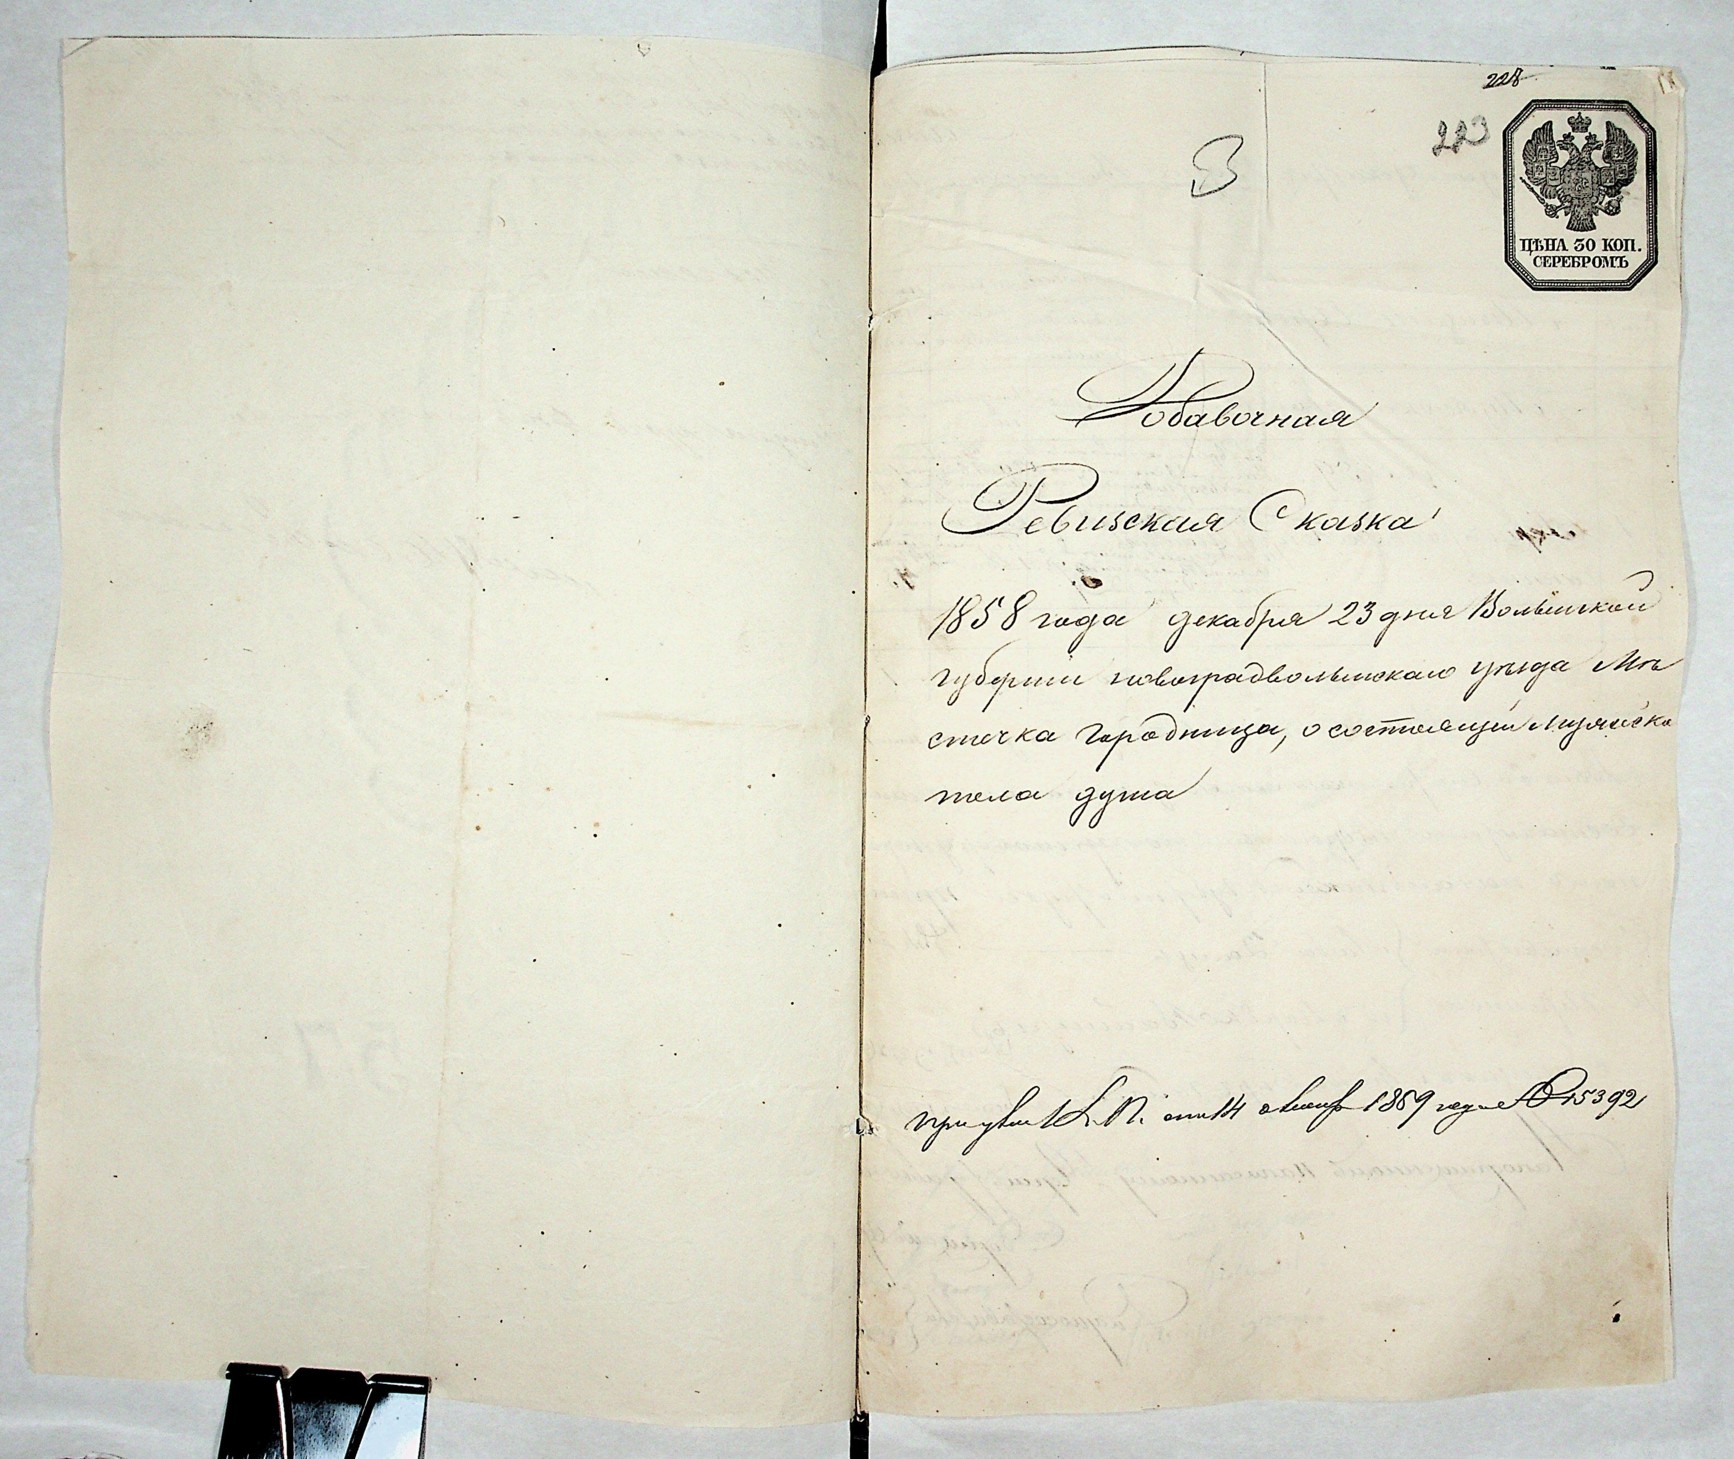 228
223
ЦѢНА 30 КОП.
СЕРЕБРОМЪ
Добавочная
Ревизская Сказка
1858 года декабря 23 дня Волынской
губерніи новоградволынскаго уѣзда Мѣ
стечка Городница, о состоящей мужеска
пола душа
при указѣ К. П. отъ 14 1869 года № 15392